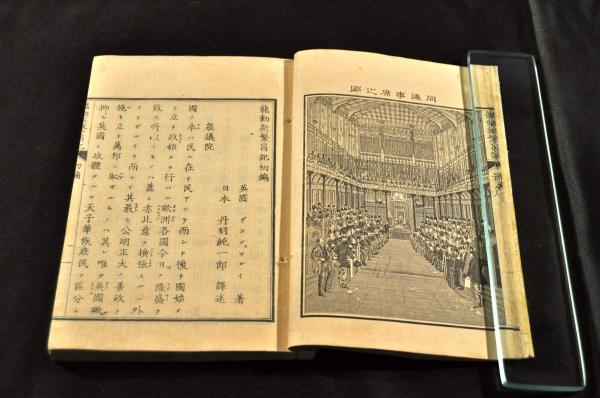 同議事席之圖
龍動新繁昌記初編
英國 ヂヨンマレイ 著
日本 丹羽純一郎 譯述
衆議院
國ノ本ハ民ニ在リ民アツテ而シテ後チ國始メ
テ立チ政始メテ行ハル歐洲各國今日ノ隆盛ヲ
致ス所以ノモノハ蓋シ亦此意ヲ擴張スルニ外
ナラザルナリ而シテ其最モ公明正大ノ善政ヲ
施シ立テ萬邦ニ耻ザルモノハ其レ唯タ英國歟
抑モ英國ノ政體タルヤ天子華族庶民ヲ區分シ